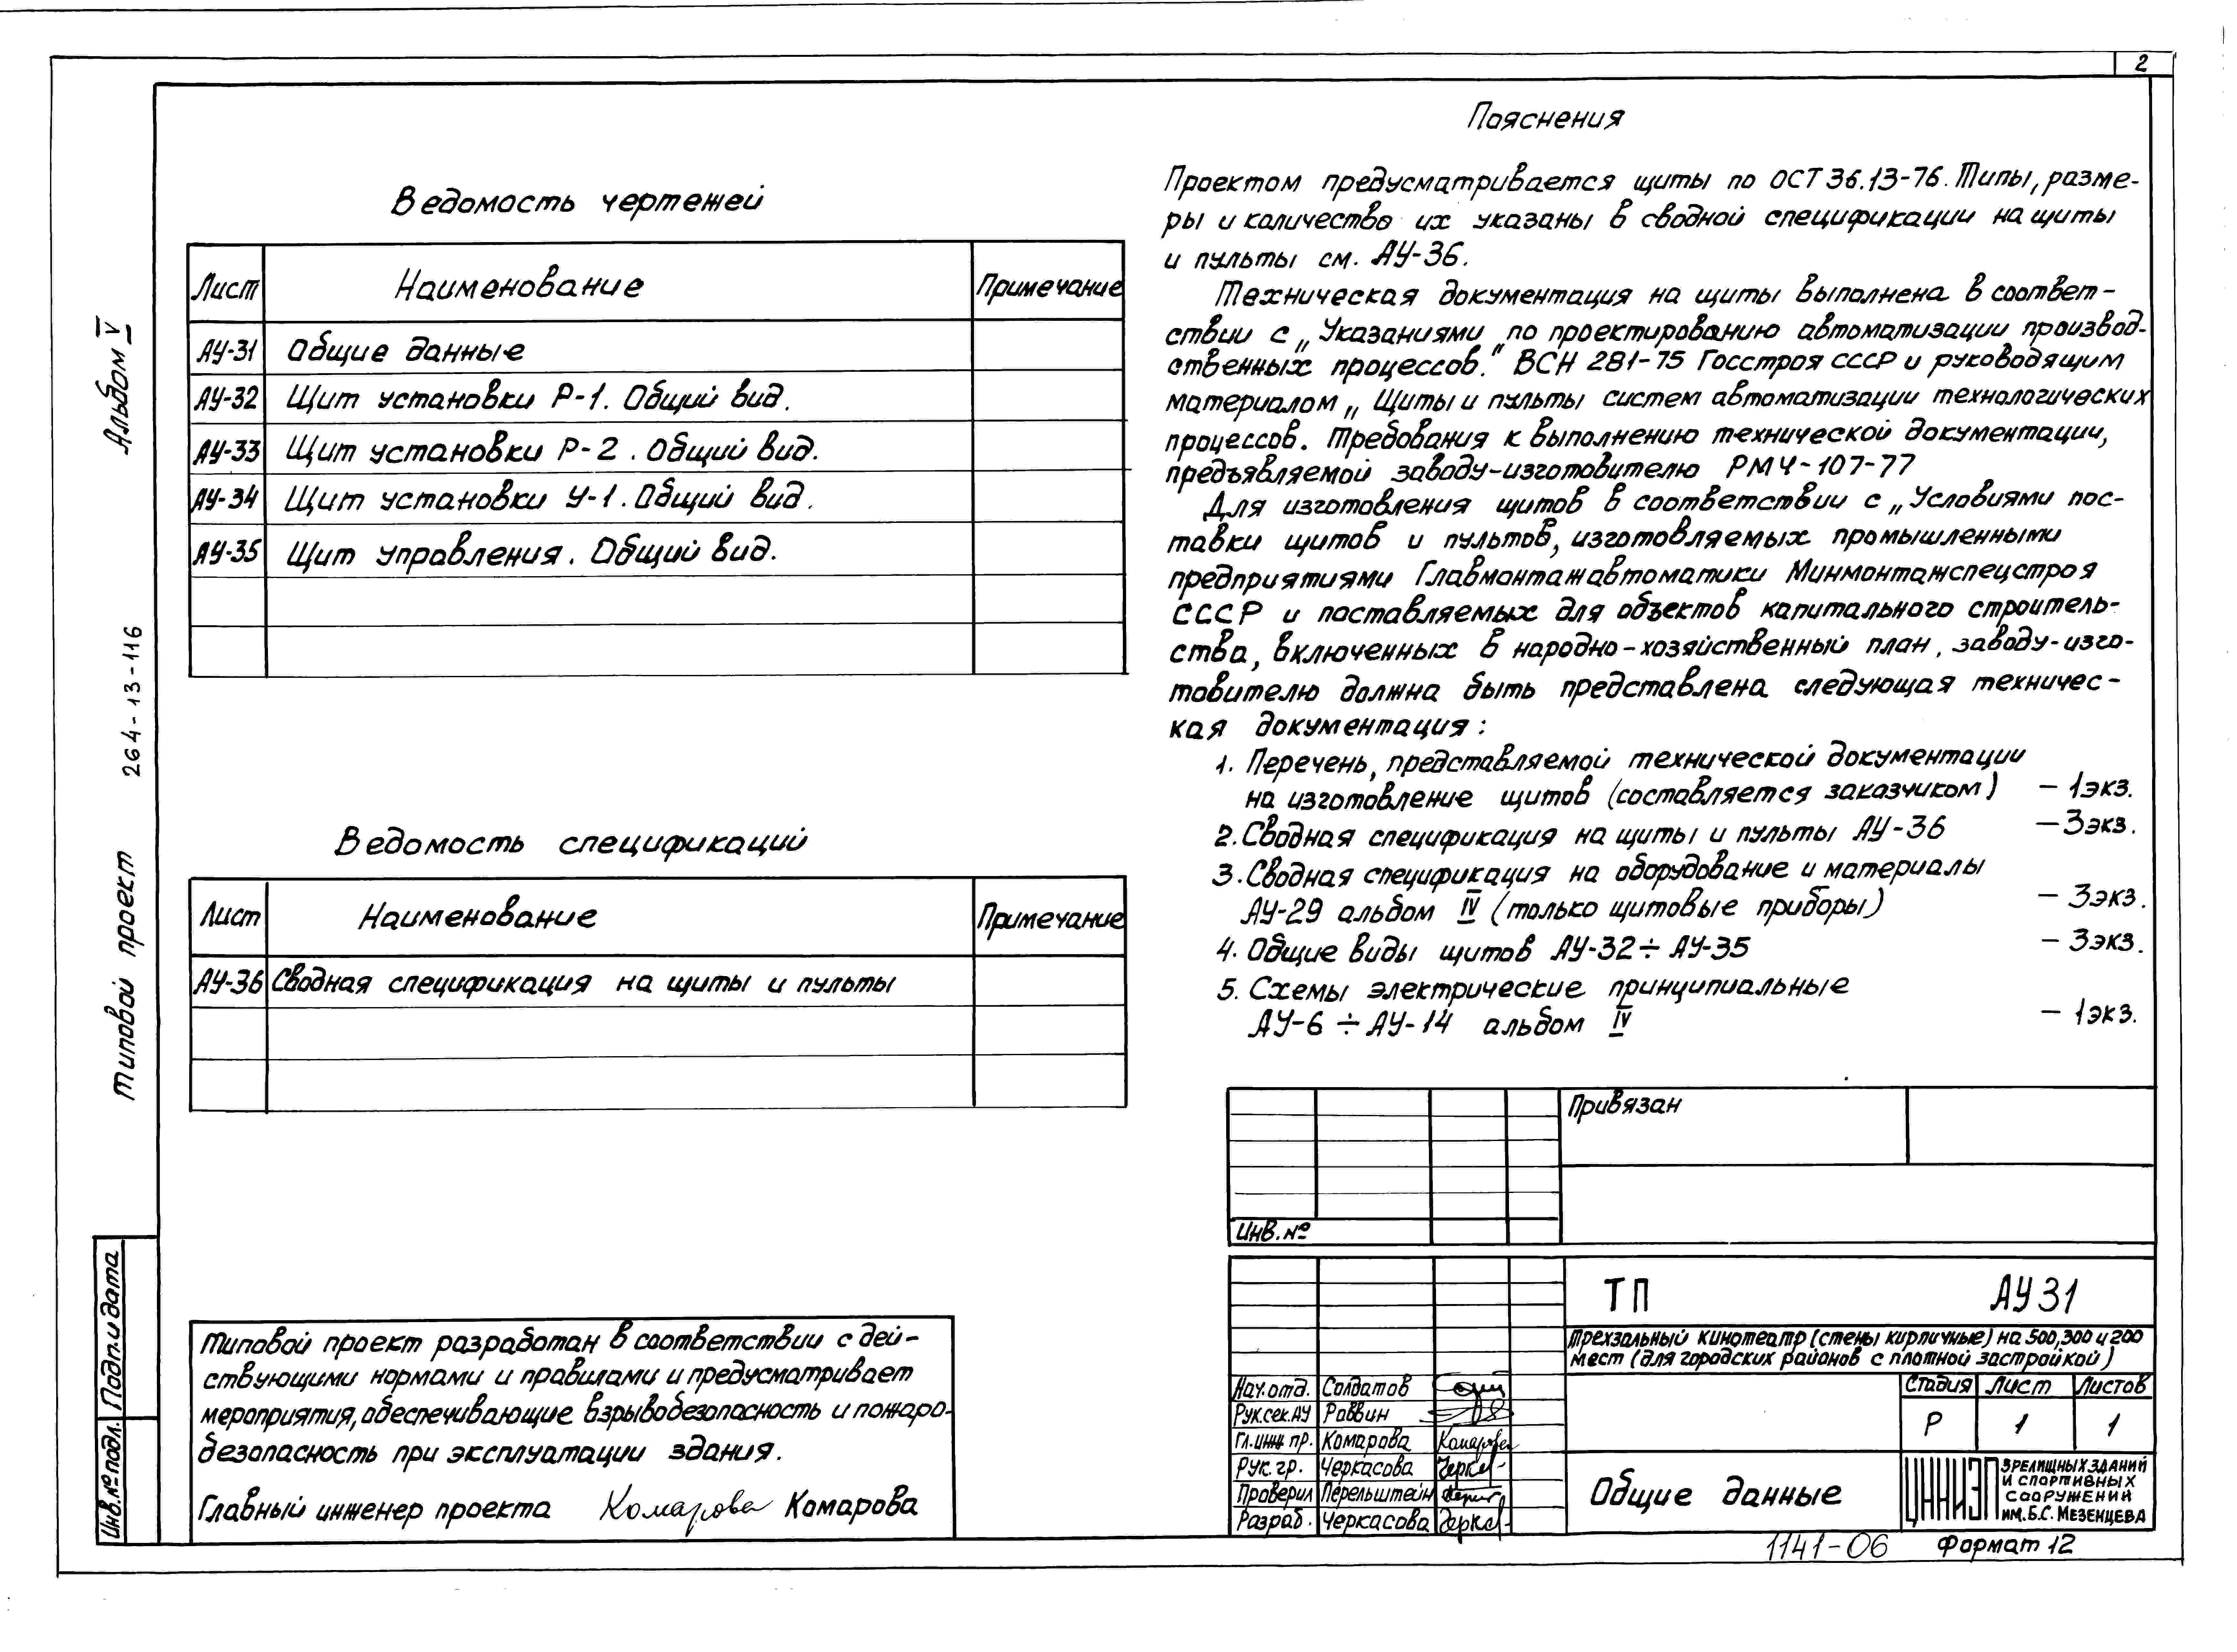 2
Альбом V
Типовой проект 264-13-116
Ведомость чертежей
Лист Наименование Примечание
АУ-31 Общие данные
АУ-32 Щит установки Р-1. Общий вид.
АУ-33 Щит установки Р-2. Общий вид.
АУ-34 Щит установки У-1. Общий вид.
АУ-35 Щит управления. Общий вид.
Ведомость спецификаций
Лист Наименование Примечание
АУ-36 Сводная спецификация на щиты и пульты
Типовой проект разработан в соответствии с дей-
ствующими нормами и правилами и предусматривает
мероприятия, обеспечивающие взрывобезопасность и пожаро-
безопасность при эксплуатации здания.
Главный инженер проекта Комарова Комарова
Пояснения
Проектом предусматривается щиты по ОСТ 36.13-76. Типы, разме-
ры и количество их указаны в сводной спецификации на щиты
и пульты см. АУ-36.
Техническая документация на щиты выполнена в соответ-
ствии с „Указаниями по проектированию автоматизации производ-
ственных процессов." ВСН 281-75 Госстроя СССР и руководящим
материалом „Щиты и пульты систем автоматизации технологических
процессов. Требования к выполнению технической документации,
предъявляемой заводу-изготовителю РМ4-107-77
Для изготовления щитов в соответствии с „Условиями пос-
тавки щитов и пультов, изготовляемых промышленными
предприятиями Главмонтажавтоматики Минмонтажспецстроя
СССР и поставляемых для объектов капитального строитель-
ства, включенных в народно-хозяйственный план, заводу-изго-
товителю должна быть представлена следующая техничес-
кая документация:
1. Перечень, представляемой технической документации
на изготовление щитов (составляется заказчиком) - 1экз.
2. Сводная спецификация на щиты и пульты АУ-36 - 3экз.
3. Сводная спецификация на оборудование и материалы
АУ-29 альбом IV (только щитовые приборы) - 3экз.
4. Общие виды щитов АУ-32÷АУ-35 - 3экз.
5. Схемы электрические принципиальные
АУ-6÷АУ-14 альбом IV - 1экз.
Привязан
Инв. №
ТП АУ31
Трехзальный кинотеатр (стены кирпичные) на 500, 300 и 200
мест (для городских районов с плотной застройкой)
Нач.отд. Солдатов
Рук.сек.АУ Раввин
Гл.инж пр. Комарова Комарова
Рук.гр. Черкасова
Проверил Перельштейн
Разраб. Черкасова
Стадия Лист Листов
Р 1 1
Общие данные
ЦНИИЭП ЗРЕЛИЩНЫХ ЗДАНИЙ
И СПОРТИВНЫХ
СООРУЖЕНИЙ
ИМ. Б.С. МЕЗЕНЦЕВА
1141-06 Формат 12
Инв.№подл. Подп.и дата